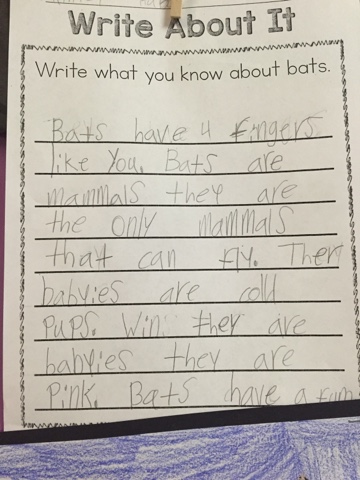 Write About It
Write what you know about bats.
Bats have 4 fingers
like you. Bats are
mammals they are
the only mammals
that can fly. Ther
babyies are colld
pups. Win they are
babyies they are
Pink. Bats have a